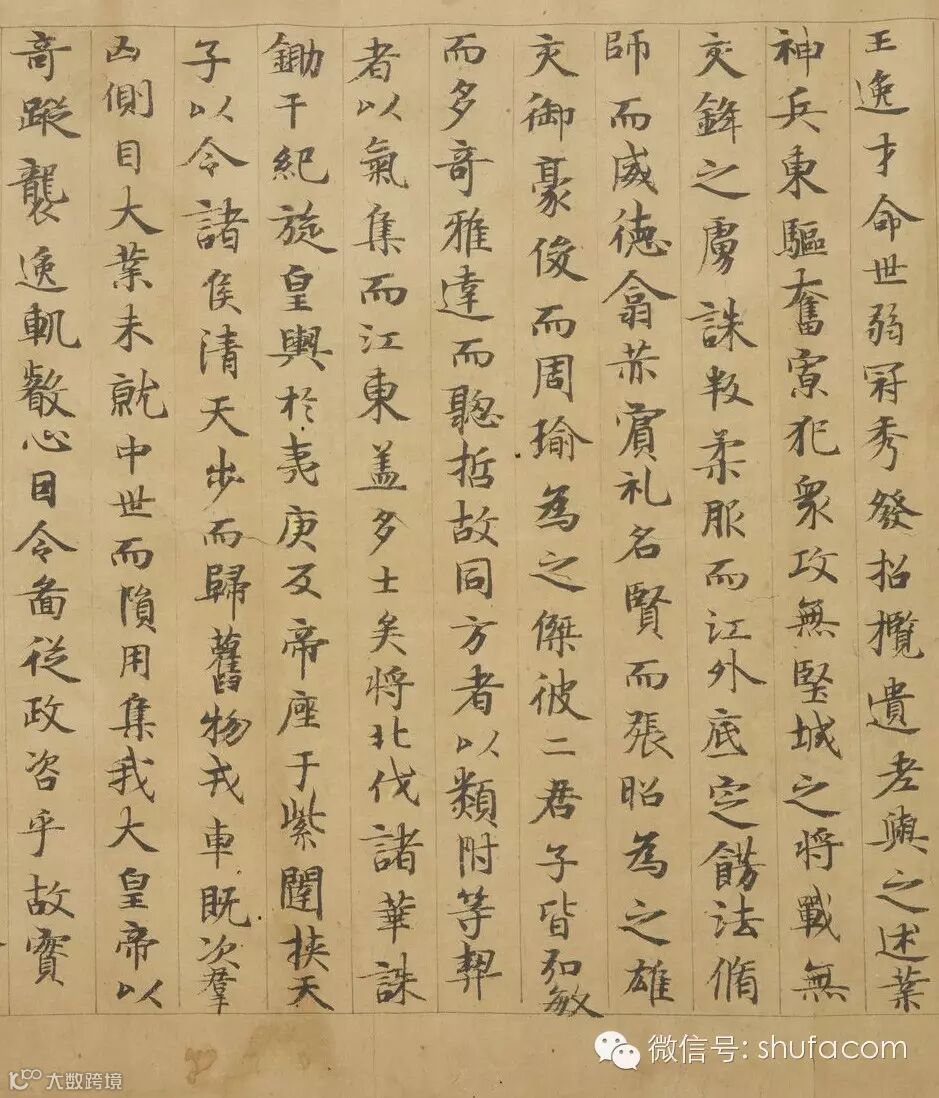 王逸才命世弱冠秀發招攬遺老與之述業
神兵東驅奮寡犯衆攻無堅城之將戰無
交鋒之虜誅叛柔服而江外底定餝法脩
師而威德翕赤賓礼名賢而張昭為之雄
交御豪俊而周瑜為之傑彼二君子皆弘敏
而多奇雅達而聰哲故同方者以類附等契
者以氣集而江東盖多士矣將北伐諸華誅
鋤干紀旋皇輿於夷庚反帝座于紫闥挾天
子以令諸侯清天步而歸舊物戎車既次羣
凶側目大業未就中世而隕用集我大皇帝以
奇蹤襲逸軌叡心因令啚從政咨乎故實
微信号: shufacom
大数跨境